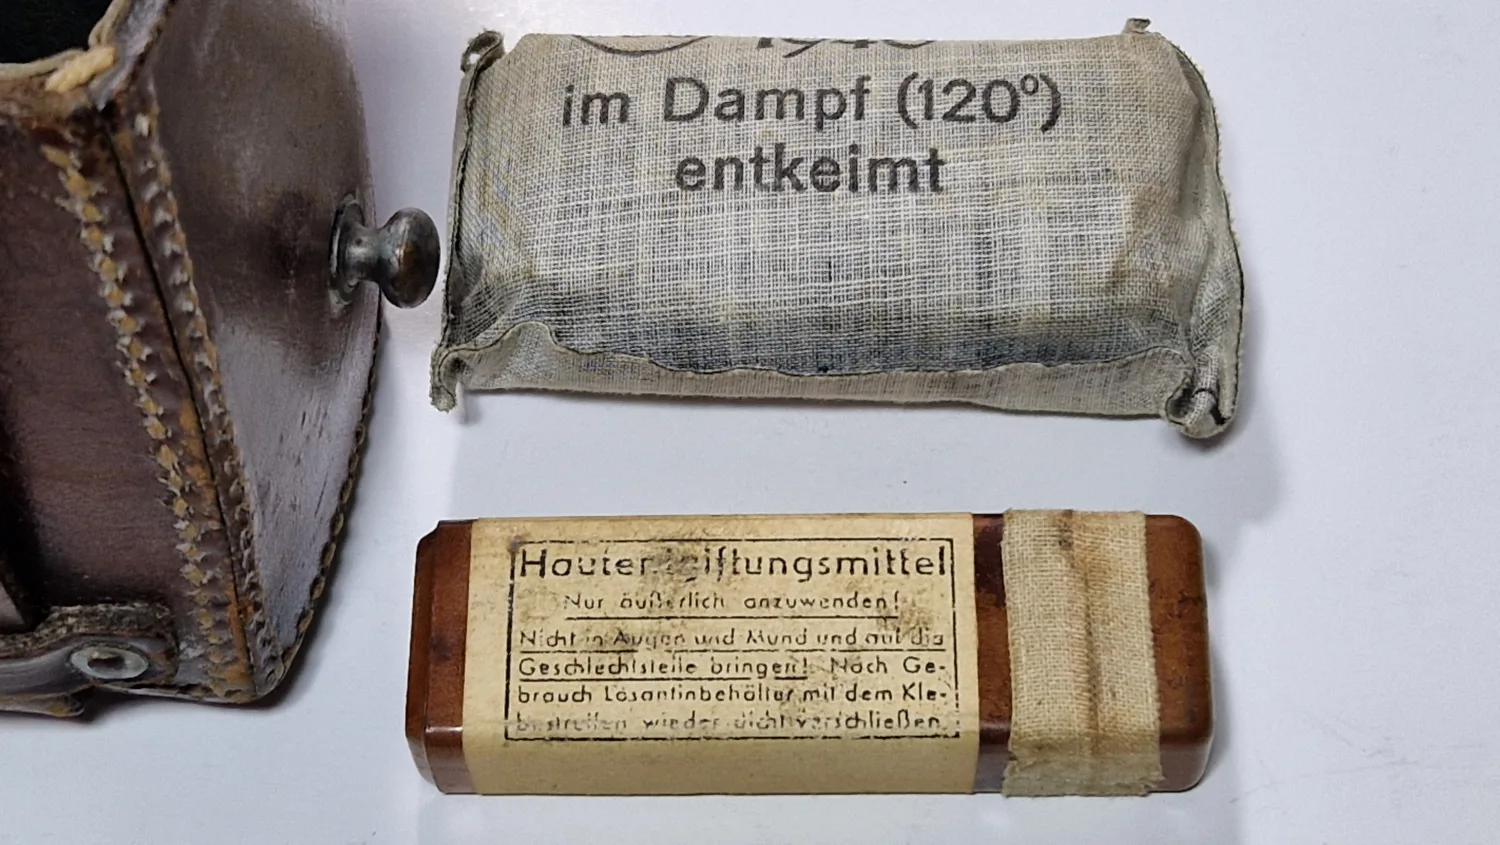 1940
im Dampf (120°)
entkeimt
Hautentgiftungsmittel
Nur äußerlich anzuwenden!
Nicht in Augen und Mund und auf die
Geschlechtsteile bringen! Nach Ge-
brauch Losantinbehälter mit dem Kle-
bestreifen wieder dicht verschließen.